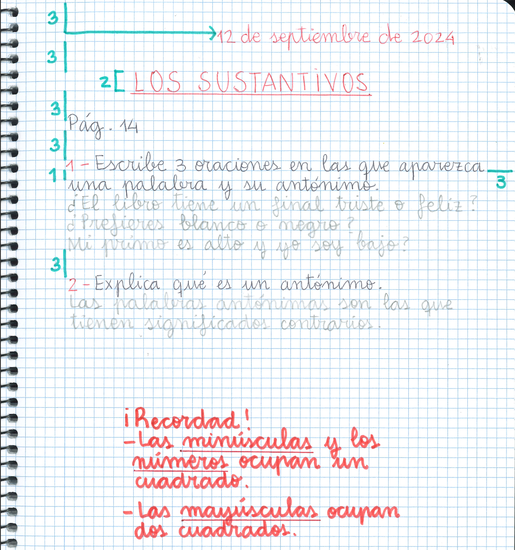 3
12 de septiembre de 2024
3
2 LOS SUSTANTIVOS
3
Pág. 14
3
1 1 - Escribe 3 oraciones en las que aparezca
una palabra y su antónimo. 3
¿El libro tiene un final triste o feliz?
¿Prefieres blanco o negro?
Mi primo es alto y yo soy bajo?
3
2 - Explica qué es un antónimo.
Las palabras antónimas son las que
tienen significados contrarios.
¡Recordad!
- Las minúsculas y los
números ocupan un
cuadrado.
- Las mayúsculas ocupan
dos cuadrados.